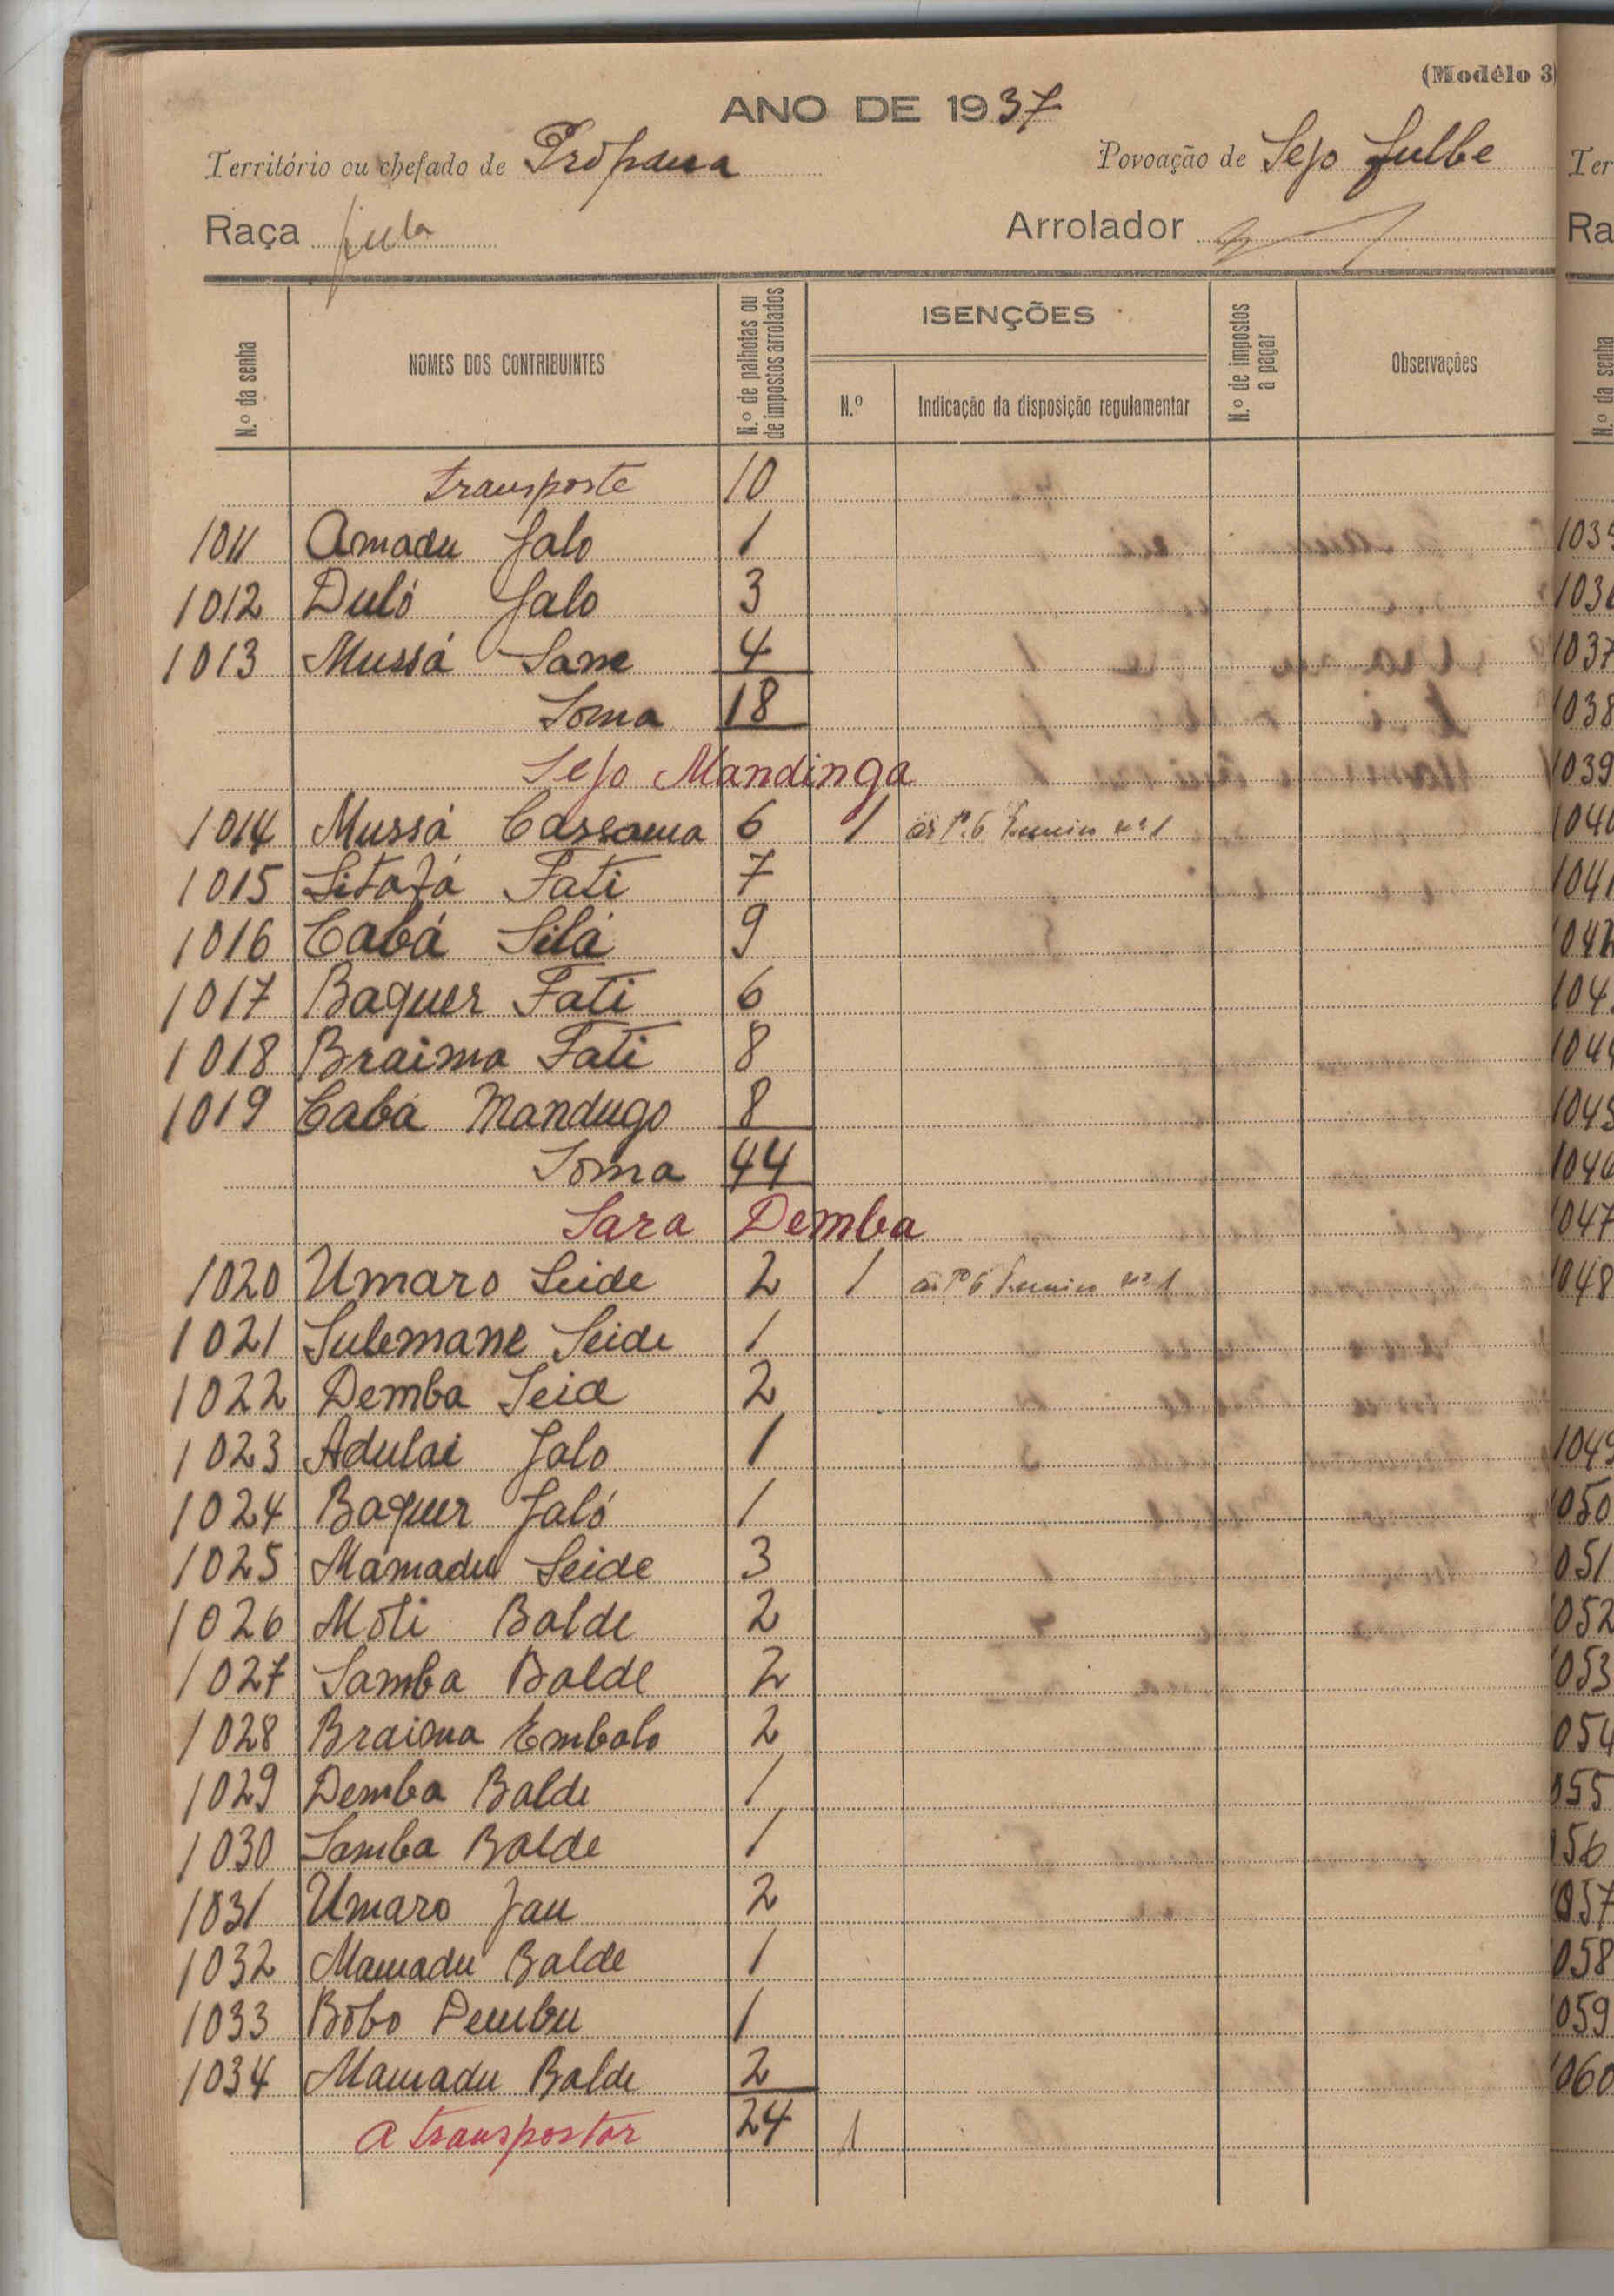 (Modêlo 3
ANO DE 1937
Território ou chefado de Própana Povoação de Sejo fulbe
Raça fula Arrolador
N.º da senha NOMES DOS CONTRIBUINTES N.º de palhotas ou de impostos arrolados ISENÇÕES N.º de impostos a pagar Observações
N.º Indicação da disposição regulamentar
transporte 10
1011 Amadu Jalo 1
1012 Duló Jalo 3
1013 Mussá Sane 4
Soma 18
Sejo Mandinga
1014 Mussá Cassama 6 1 nº 1
1015 Sitafá Fati 7
1016 Cabá Silá 9
1017 Baquer Fati 6
1018 Braima Fati 8
1019 Cabá Mandugo 8
Soma 44
Sara Demba
1020 Umaro Seide 2 1 nº 1
1021 Sulemane Seide 1
1022 Demba Seid 2
1023 Adulai Jalo 1
1024 Baquer Jaló 1
1025 Mamadu Seide 3
1026 Moti Balde 2
1027 Samba Balde 2
1028 Braima Embalo 2
1029 Demba Balde 1
1030 Samba Balde 1
1031 Umaro Jau 2
1032 Mamadu Balde 1
1033 Bobo Dembu 1
1034 Mamadu Balde 2
a transportar 24 1
Ter
Ra
N.º da senha
1037
1038
1039
1046
1047
1048